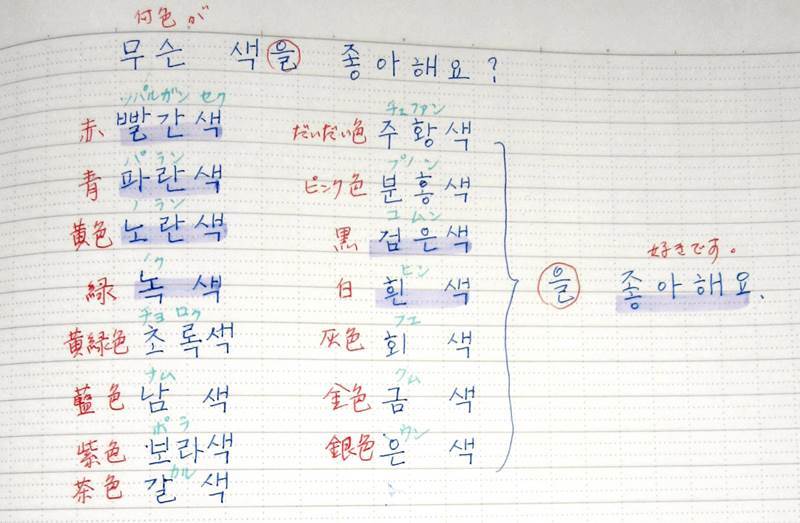 何色が
무슨 색을 좋아해요?
ッパルガン セク
赤 빨간색
パラン
青 파란색
ノラン
黄色 노란색
ノク
緑 녹색
チョロク
黄緑色 초록색
ナム
藍色 남색
ポラ
紫色 보라색
カル
茶色 갈색
チュファン
だいだい色 주황색
プノン
ピンク色 분홍색
コムン
黒 검은색
ヒン
白 흰색
フェ
灰色 회색
クム
金色 금색
ウン
銀色 은색
好きです。
을 좋아해요.